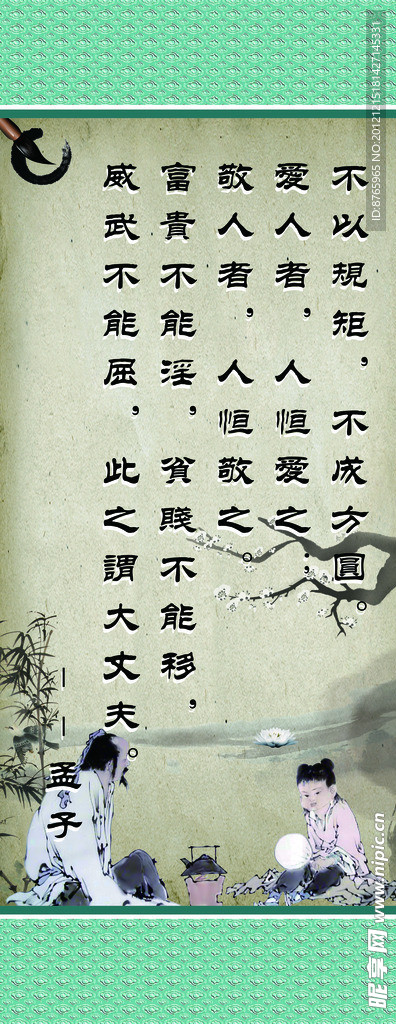 不以規矩，不成方圓。
愛人者，人恒愛之；
敬人者，人恒敬之。
富貴不能淫，貧賤不能移，
威武不能屈，此之謂大丈夫。
——孟子
ID:8765965 NO:20121215181427145331
昵享网 www.nipic.cn